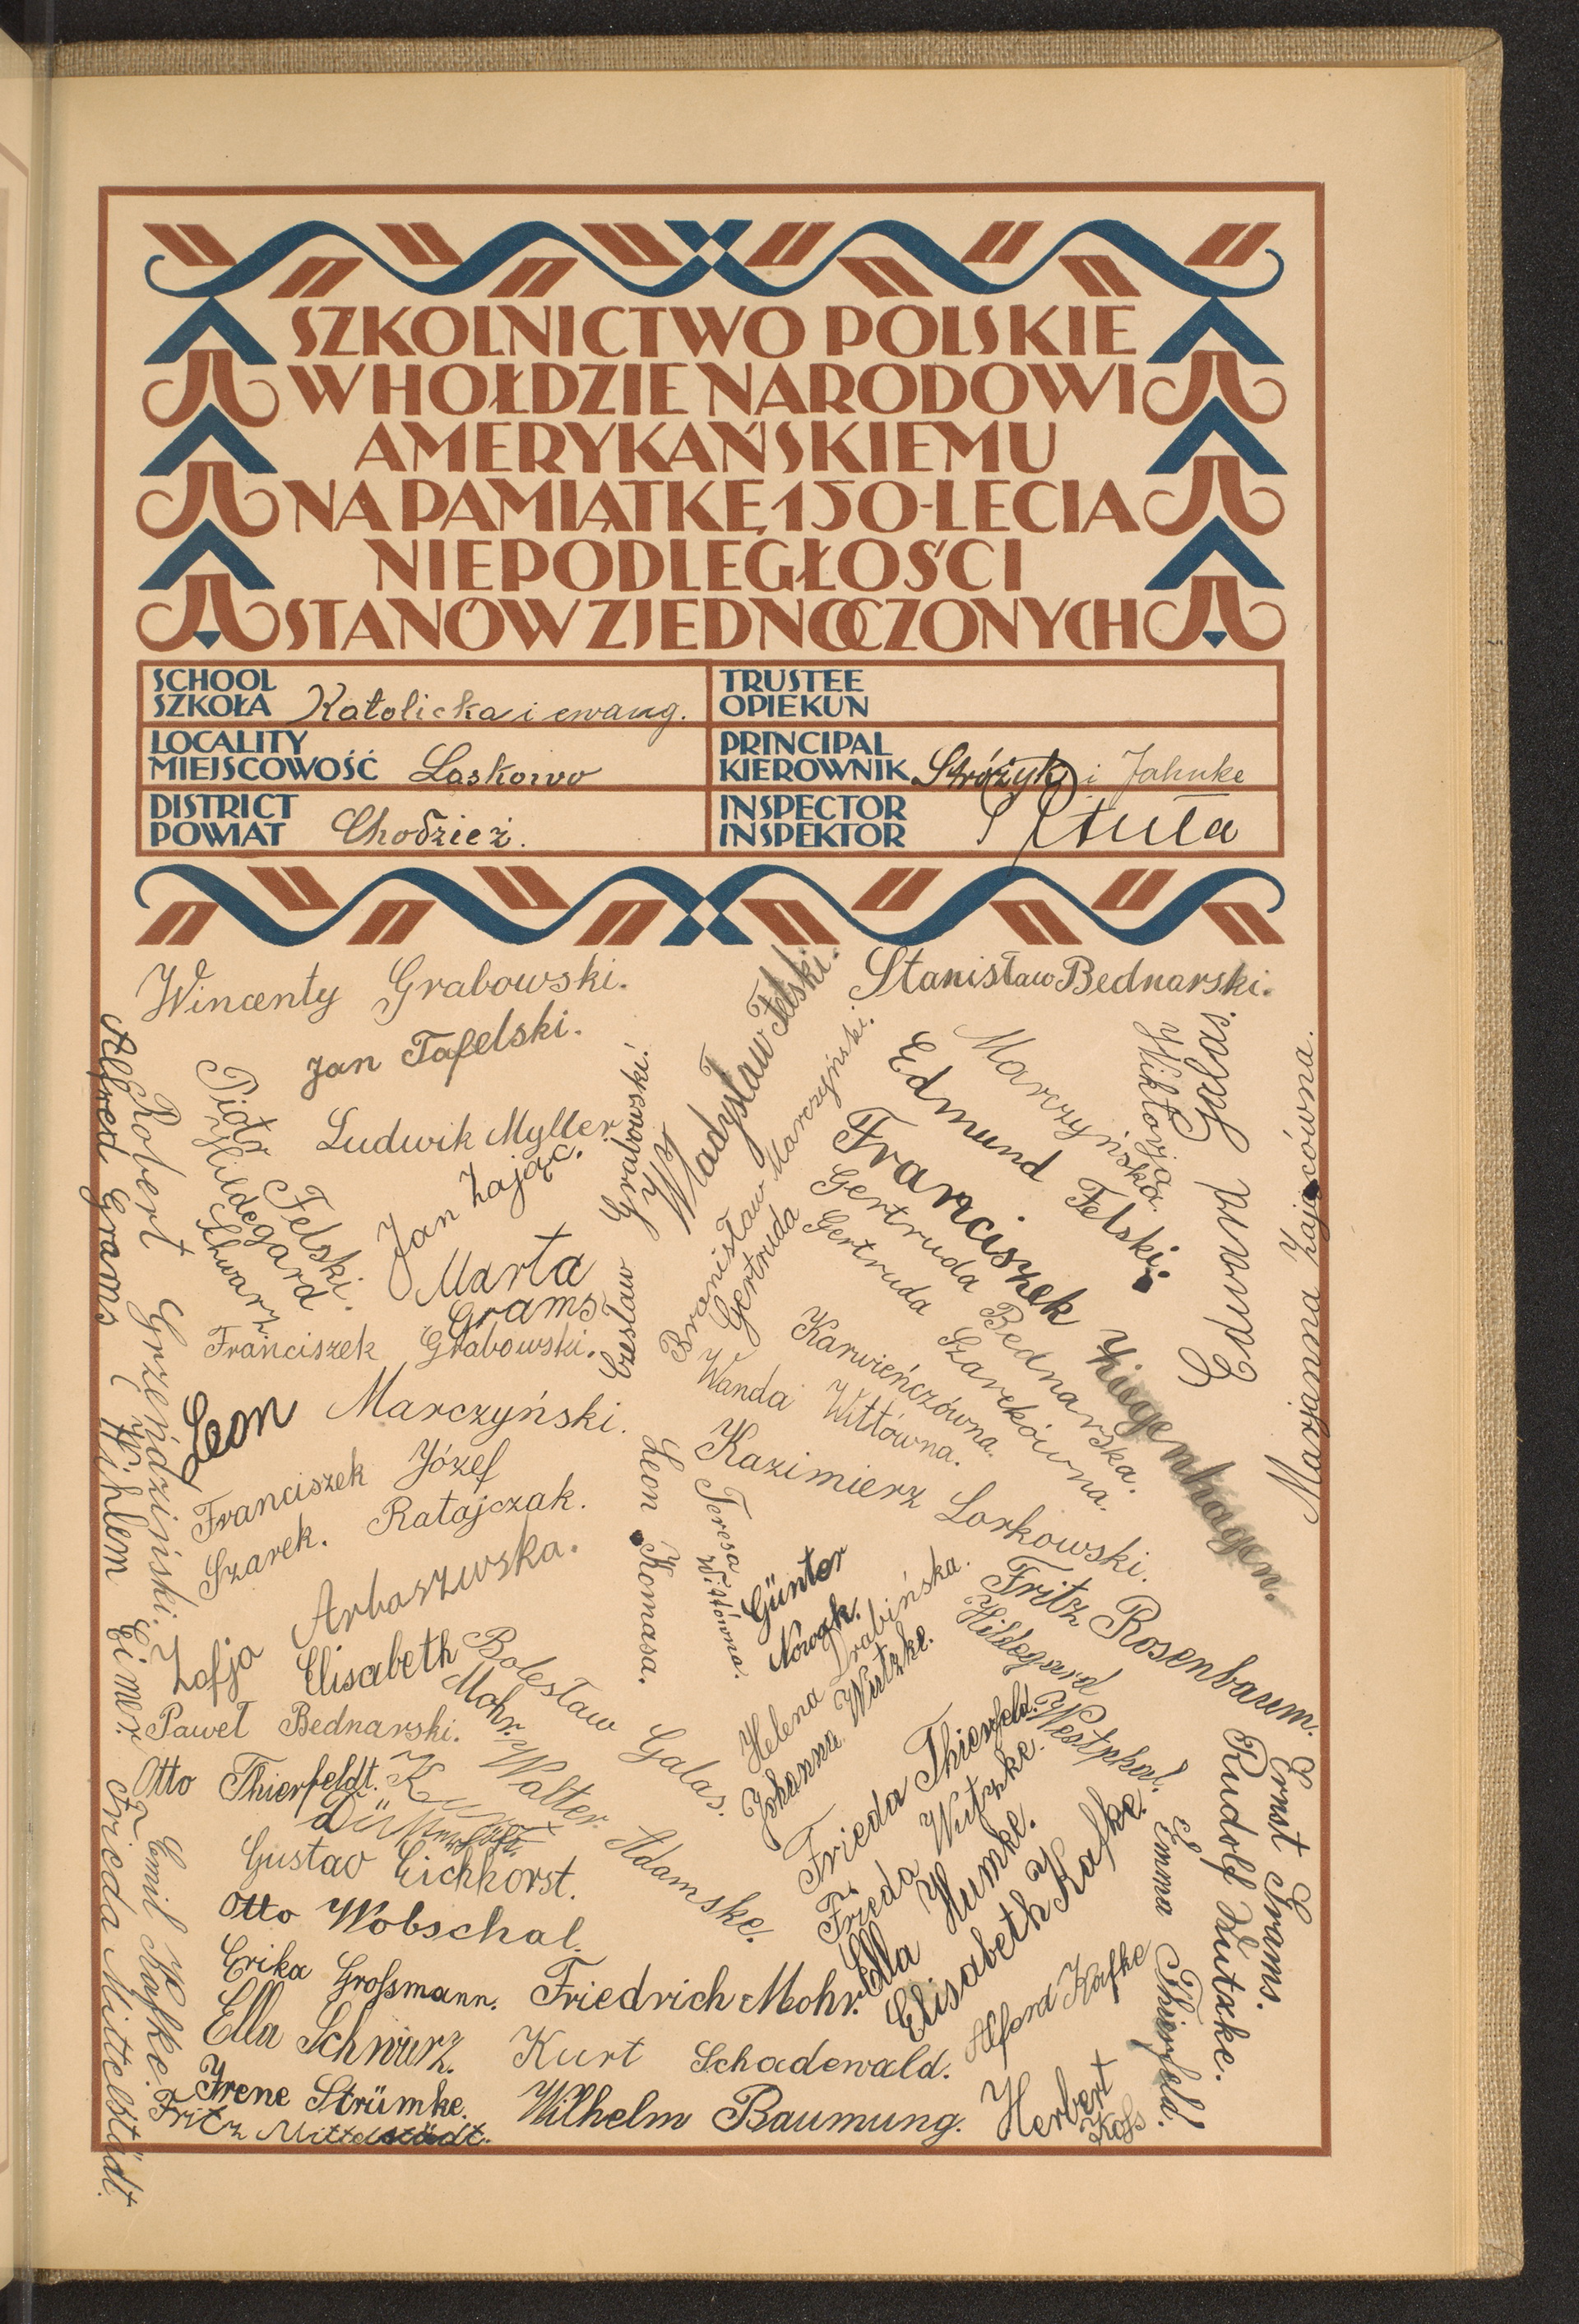 SZKOLNICTWO POLSKIE
W HOŁDZIE NARODOWI
AMERYKAŃSKIEMU
NA PAMIĄTKĘ 150-LECIA
NIEPODLEGŁOŚCI
STANÓW ZJEDNOCZONYCH
SCHOOL
SZKOŁA Katolicka i ewang.
TRUSTEE
OPIEKUN
LOCALITY
MIEJSCOWOŚĆ Laskowo
PRINCIPAL
KIEROWNIK Stróżyk i Jahnke
DISTRICT
POWIAT Chodzież.
INSPECTOR
INSPEKTOR
Wincenty Grabowski.
Stanisław Bednarski.
Jan Tafelski.
Władysław Felski.
Ludwik Myller
Piotr Felski.
Hildegard
Schwarz
Robert Grzeńdziński.
Alfred Grams
Jan Zając.
Czesław Grabowski.
Bronisław Marczyński.
Edmund Felski.
Marczyńska
Wiktorja.
Edward Galas.
Marjanna Zającówna.
Franciszek Hiegenhagen.
Gertruda Bednarska.
Gertruda Szarekówna.
Gertruda
Karwieńczówna.
Marta
Grams
Franciszek Grabowski.
Wanda Wittówna.
Leon Marczyński.
Kazimierz Lorkowski.
Franciszek
Szarek.
Józef
Ratajczak.
Leon Komasa.
Teresa
Wittówna.
Wihlem Eimer
Zofja Arbaszewska.
Günter
Nowak.
Helena Drabińska.
Johanna Wutzke.
Fritz Rosenbaum.
Hildegard
Westphal.
Elisabeth
Mohr.
Bolesław Galas.
Paweł Bednarski.
Otto Thierfeldt.
Walter Adamske.
Frieda Thierfeld.
Frieda Wutzke.
Ella Humke.
Elisabeth Kafke.
Ernst Grams.
Rudolf Zutzke.
Emma Thierfeld.
Gustav Eichhorst.
Otto Wobschal.
Emil Kafke.
Frieda Mittelstädt.
Erika Großmann.
Friedrich Mohr.
Ella Schwarz.
Kurt Schadewald.
Alferd Kafke
Irene Strümke.
Wilhelm Baumung.
Herbert
Koss
Fritz Mittelstädt.